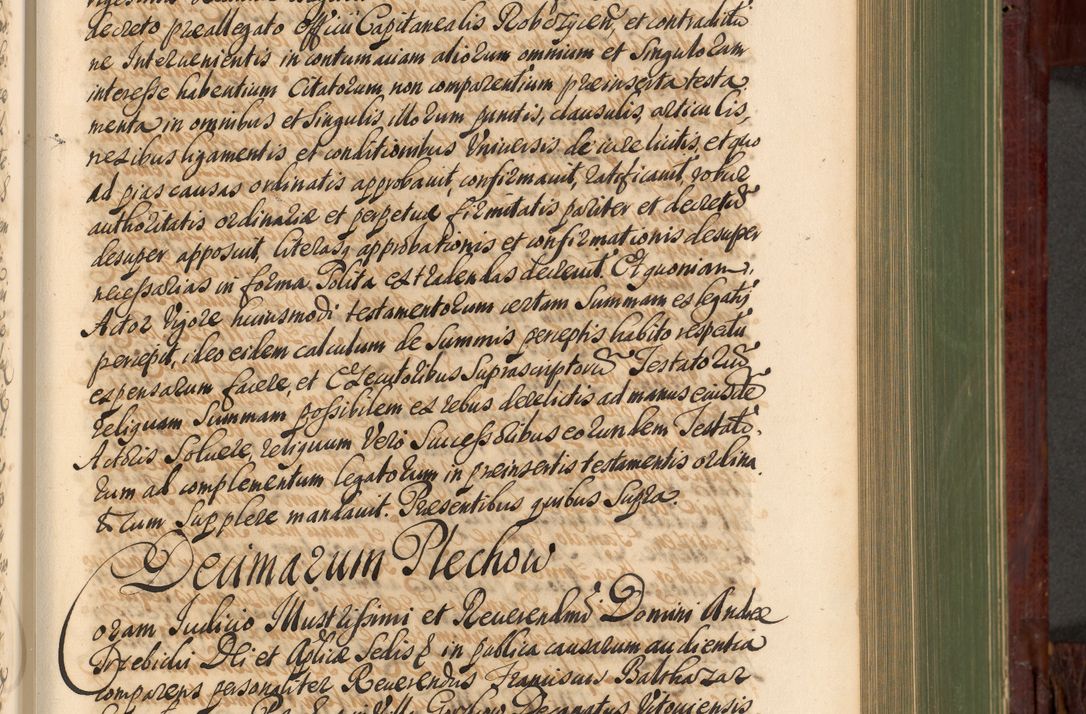 decreto preallegato Officii Capitanealis Robczycen, et contradictio
ne Intervenientis in contumaciam aliorum omnium et Singulorum
interesse habentium Citatorum, non comparentium preinserta testa
menta in omnibus et Singulis illorum punctis, clausulis, articulis,
nexibus ligamentis et conditionibus Universis de iure licitis, et quo
ad pias causas ordinatis approbavit, confirmavit, ratificavit, robur
authoritatis ordinariæ et perpetuæ firmitatis pariter et decretũ
desuper apposuit, literasq approbationis et confirmationis desuper
necessarias in forma Solita extradendas decrevit. Et quoniam
Actor Vigore huiusmodi testamentorum certam Summam ex legatis
percepit, ideo eidem calculum de Summis perceptis habito respectu
expensarum facere, et Executoribus Suprascriptorũ Testatorũ
reliquam Summam possibilem ex rebus derelictis ad manus eiusdẽ
Actoris Solvere, reliquum Vero Successoribus eorundem Testato
rum ad complementum legatorum in preinsertis testamentis ordina
torum Supplere mandavit. Presentibus quibus Supra.
Decimarum Plechow
Coram Iudicio Illustrissimi et Reverendmi Domini Andreæ
Trzebicki Dei et Aplicæ Sedis in publica causarum audientia
comparens personaliter Reverendus Franciscus Balthazar
Decanatus Vitoviensis